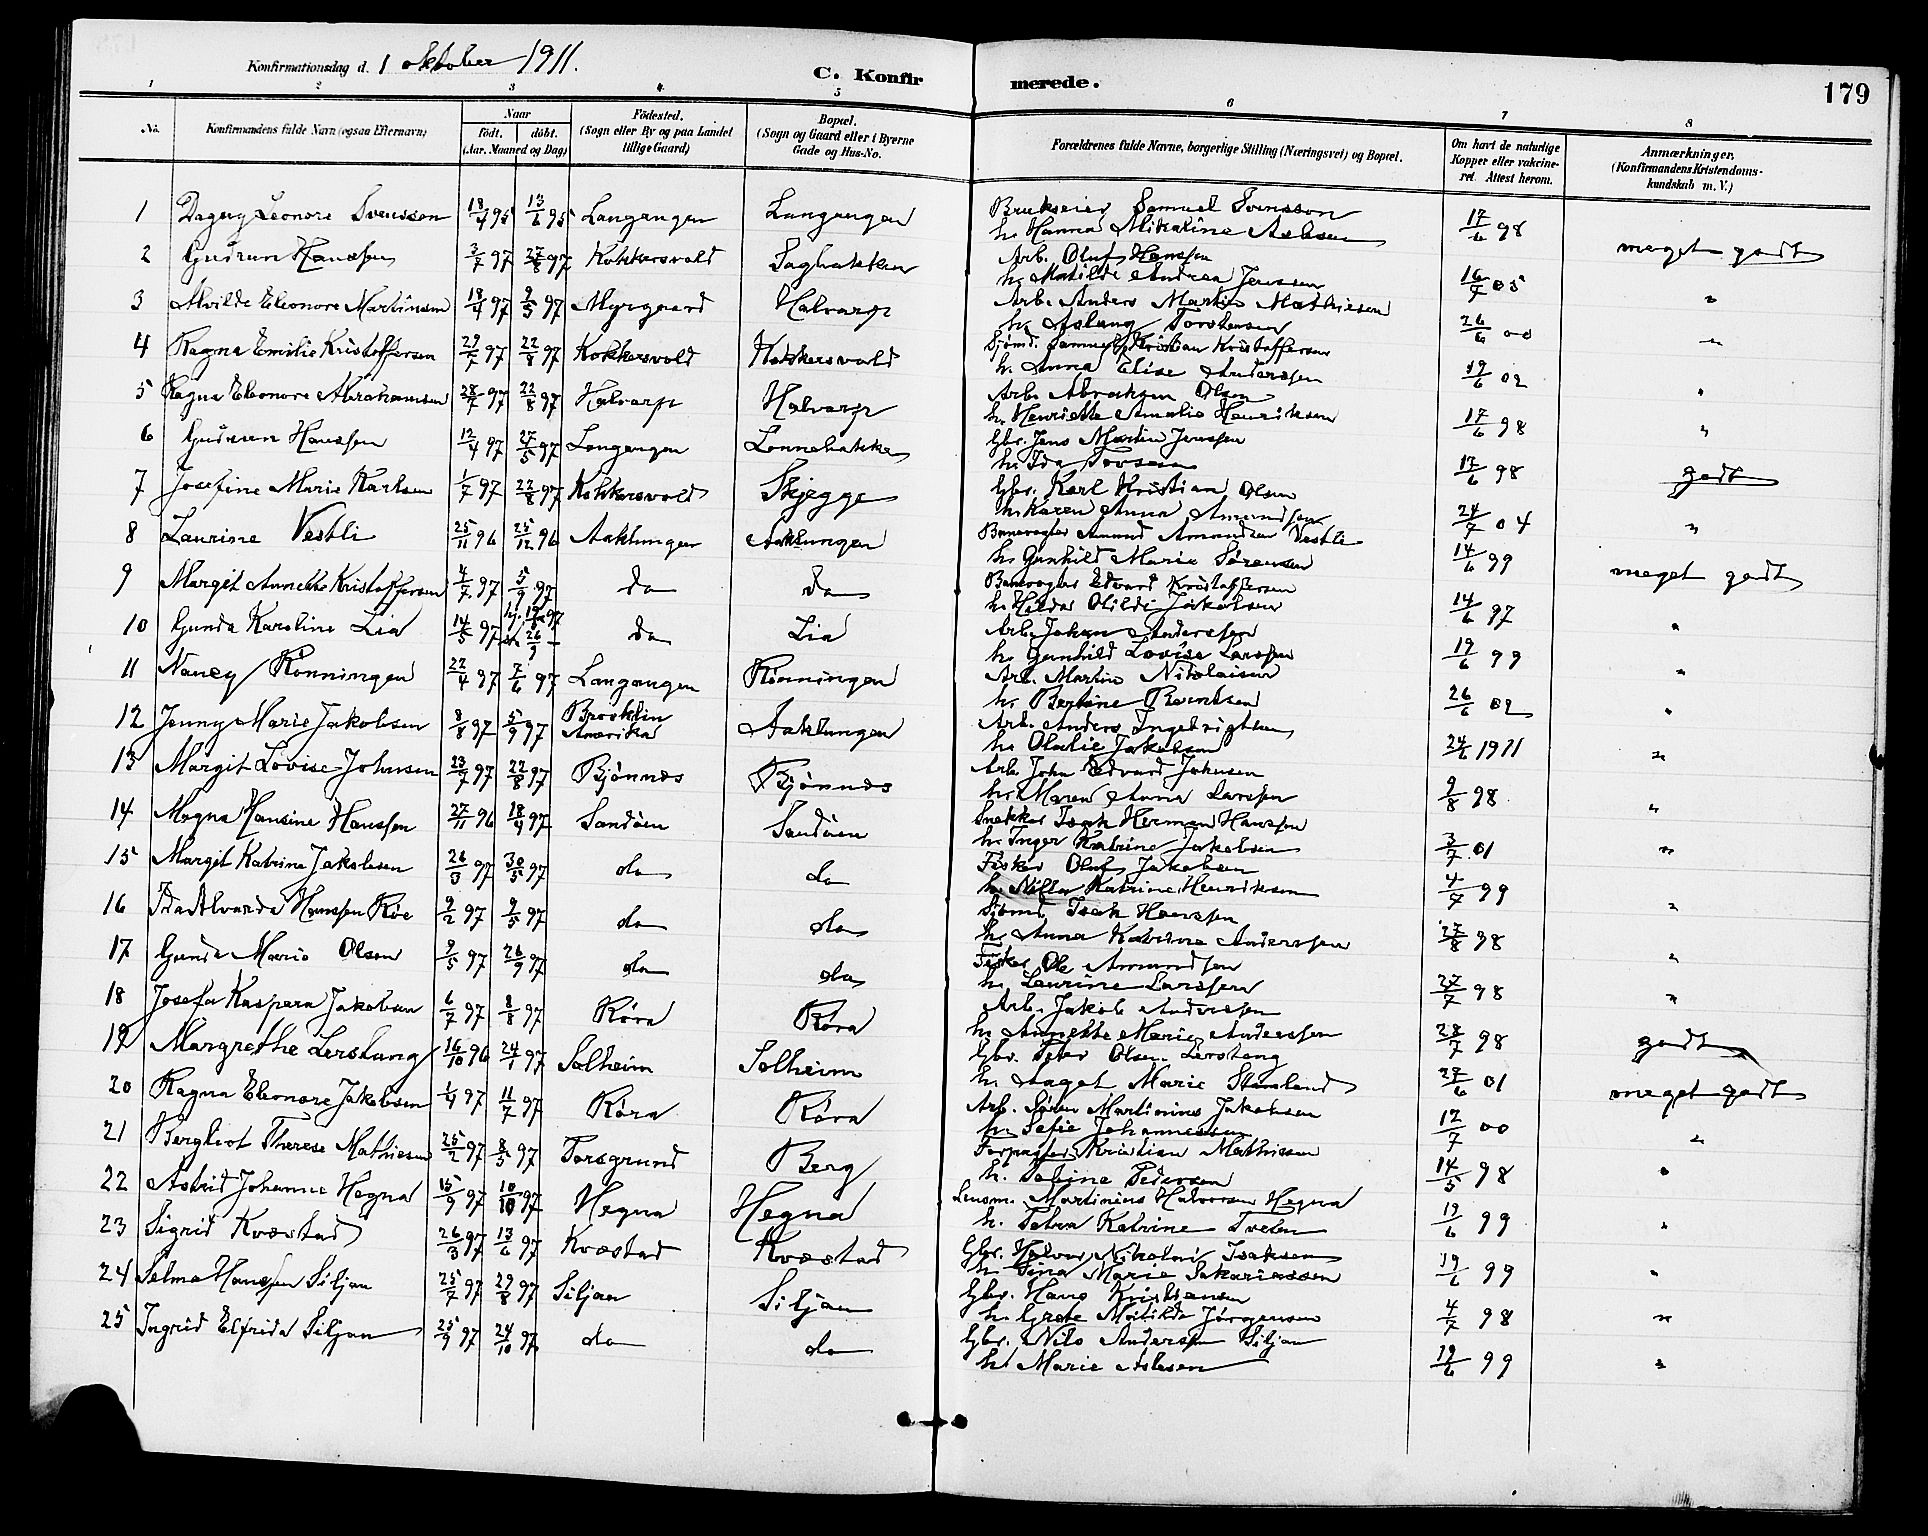 179
Konfirmationsdag d. 1 oktober 1911.
C. Konfirmerede.
1 2 3 4 5 6 7 8
No. Konfirmandens fulde Navn (ogsaa Efternavn) Naar født. døbt. (Aar. Maaned og Dag) Fødested. (Sogn eller By og paa Landet tillige Gaard) Bopæl. (Sogn og Gaard eller i Byerne Gade og Hus-No. Forældrenes fulde Navne, borgerlige Stilling (Næringsvei) og Bopæl. Om havt de naturlige Kopper eller vakcineret. Attest herom. Anmærkninger. (Konfirmandens Kristendomskundskab m. V.)
1 Dagny Leonore Svensson 18/4 95 13/6 95 Langangen Langangen Brukseier Samuel Svensson
h. Hanna Mikaline Aslesen 17/6 98 meget godt
2 Gudrun Hanssen 3/7 97 22/8 97 Kokkersvold Saghakken Arb. Oluf Hanssen
h. Matilde Andrea Jenssen 16/7 05 "
3 Alvilde Eleonore Martinsen 18/4 97 9/5 97 Myrgaard Halvarp Arb. Anders Martin Mathiesen
h. Aslaug Torstensen 26/6 00 "
4 Ragna Emilie Kristoffersen 29/5 97 22/8 97 Kokkersvold Kokkersvold Sjømd. Samuel Kristian Kristoffersen
h. Anna Elise Anderssen 19/6 02 "
5 Ragna Eleonore Abrahamsen 28/7 97 22/8 97 Halvarp Halvarp Arb. Abraham Olsen
h. Henriette Amalie Henriksen 17/6 98 "
6 Gudrun Hanssen 12/4 97 27/5 97 Langangen Lonnebakke Gbr. Jens Martin Jenssen
h. Ida Torsen 17/6 98 godt
7 Josefine Marie Karlsen 1/7 97 22/8 97 Kokkersvold Skjegge Gbr. Karl Kristian Olsen
h. Karen Anna Amundsen 24/7 04 "
8 Laurine Vestli 25/11 96 25/12 96 Aaklungen Aaklungen Banevogter Amund Amundsen Vestli
h. Gunhild Marie Sørensen 14/6 99 meget godt
9 Margit Annette Kristoffersen 4/7 97 5/9 97 do do Banevogter Edvard Kristoffersen
h. Hilda Otilde Jakobsen 14/6 97 "
10 Gunda Karoline Lia 14/5 97 26/9 do Lia Arb. Johan Anderssen
h. Gunhild Lovise Larssen 19/6 99 "
11 Nancy Rönningen 22/4 97 7/6 97 Langangen Rönningen Arb. Martin Nikolaisen
h. Bertine Berntsen 26/6 02 "
12 Jenny Marie Jakobsen 8/8 97 5/9 97 Brooklin Amerika Aaklungen Arb. Anders Ingebrigtsen
h. Olalie Jakobsen 24/6 1911 "
13 Margit Lovise Johnsen 23/7 97 22/8 97 Bjönnes Bjönnes Arb. John Edvard Johnsen
h. Maren Anna Larssen 9/8 98 "
14 Magna Hansine Hanssen 27/11 96 18/4 97 Sandöen Sandöen Snekker Isak Herman Hanssen
h. Inger Katrine Jakobsen 3/7 01 "
15 Margit Katrine Jakobsen 26/3 97 30/5 97 do do Fisker Oluf Jakobsen
h. Katrine Henriksen 4/7 99 "
16 Ida Alvarda Hanssen Röe 9/2 97 9/5 97 do do Sjömd. Isak Hanssen
h. Anna Katrine Anderssen 27/8 98 "
17 Gunda Marie Olsen 9/5 97 26/9 97 do do Fisker Ole Amundsen
h. Laurine Larssen 27/7 98 "
18 Josefa Kaspera Jakobsen 6/7 97 8/8 97 Röra Röra Arb. Jakob Andressen
h. Annette Marie Anderssen 28/7 98 godt
19 Margrethe Lerstang 16/10 96 24/1 97 Solheim Solheim Gbr. Peter Olsen Lerstang
h. Aaget Marie Stensland 27/6 01 meget godt
20 Ragna Eleonore Jakobsen 1/4 97 11/7 97 Röra Röra Arb. Søren Martinius Jakobsen
h. Sofie Johannessen 12/7 00 "
21 Bergliot Therese Mathiesen 25/2 97 8/5 97 Porsgrund Berg Forpagter Kristian Mathiesen
h. Tobine Pedersen 14/5 98 "
22 Astrid Johanne Hegna 15/9 97 10/10 97 Hegna Hegna Lensm. Martinius Halvorsen Hegna
h. Petra Katrine Tveten 19/6 99 "
23 Sigrid Kvæstad 26/3 97 13/6 97 Kvæstad Kvæstad Gbr. Halvor Nikolai Isaksen
h. Tina Marie Sakariassen 19/6 99 "
24 Selma Hanssen Siljan 25/7 97 29/8 97 Siljan Siljan Gbr. Hans Kristensen
h. Grete Matilde Jörgensen 4/7 98 "
25 Ingrid Elfrida Siljan 25/9 97 24/10 97 do do Gbr. Nils Anderssen Siljan
h. Marie Aslesen 19/6 99 "